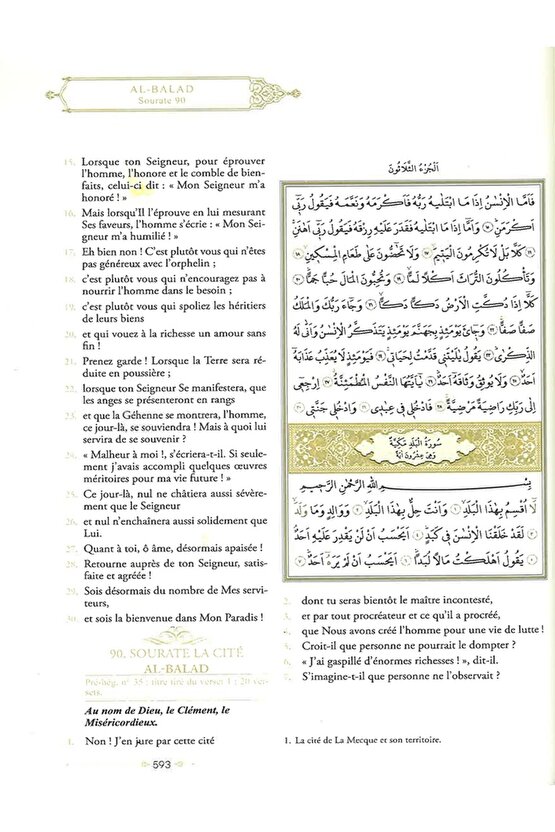 AL-BALAD
Sourate 90
15. Lorsque ton Seigneur, pour éprouver
l'homme, l'honore et le comble de bien-
faits, celui-ci dit : « Mon Seigneur m'a
honoré ! »
16. Mais lorsqu'Il l'éprouve en lui mesurant
Ses faveurs, l'homme s'écrie : « Mon Sei-
gneur m'a humilié ! »
17. Eh bien non ! C'est plutôt vous qui n'êtes
pas généreux avec l'orphelin ;
18. c'est plutôt vous qui n'encouragez pas à
nourrir l'homme dans le besoin ;
19. c'est plutôt vous qui spoliez les héritiers
de leurs biens
20. et qui vouez à la richesse un amour sans
fin !
21. Prenez garde ! Lorsque la Terre sera ré-
duite en poussière ;
22. lorsque ton Seigneur Se manifestera, que
les anges se présenteront en rangs
23. et que la Géhenne se montrera, l'homme,
ce jour-là, se souviendra ! Mais à quoi lui
servira de se souvenir ?
24. « Malheur à moi !, s'écriera-t-il. Si seule-
ment j'avais accompli quelques œuvres
méritoires pour ma vie future ! »
25. Ce jour-là, nul ne châtiera aussi sévère-
ment que le Seigneur
26. et nul n'enchaînera aussi solidement que
Lui.
27. Quant à toi, ô âme, désormais apaisée !
28. Retourne auprès de ton Seigneur, satis-
faite et agréée !
29. Sois désormais du nombre de Mes servi-
teurs,
30. et sois la bienvenue dans Mon Paradis !
90. SOURATE LA CITÉ
AL-BALAD
Pré-hég. n° 35 ; titre tiré du verset 1 ; 20 ver-
sets.
Au nom de Dieu, le Clément, le
Miséricordieux.
1. Non ! J'en jure par cette cité
اَلْجُزْءُ الثَّلَاثُونَ
فَاَمَّا الْاِنْسٰنُ اِذَا مَا ابْتَلٰيهُ رَبُّهُ فَاَكْرَمَهُ وَنَعَّمَهُ فَيَقُولُ رَبّٖى
اَكْرَمَنِ ١٥ وَاَمَّٓا اِذَا مَا ابْتَلٰيهُ فَقَدَرَ عَلَيْهِ رِزْقَهُ فَيَقُولُ رَبّٖٓى اَهَانَنِ
١٦ كَلَّا بَلْ لَا تُكْرِمُونَ الْيَتٖيمَ ١٧ وَلَا تَحَٓاضُّونَ عَلٰى طَعَامِ الْمِسْكٖينِ ١٨
وَتَاْكُلُونَ التُّرَاثَ اَكْلًا لَمًّا ١٩ وَتُحِبُّونَ الْمَالَ حُبًّا جَمًّا ٢٠
كَلَّٓا اِذَا دُكَّتِ الْاَرْضُ دَكًّا دَكًّا ٢١ وَجَٓاءَ رَبُّكَ وَالْمَلَكُ
صَفًّا صَفًّا ٢٢ وَجٖٓاىءَ يَوْمَئِذٍ بِجَهَنَّمَ يَوْمَئِذٍ يَتَذَكَّرُ الْاِنْسٰنُ وَاَنّٰى لَهُ
الذِّكْرٰى ٢٣ يَقُولُ يٰلَيْتَنٖى قَدَّمْتُ لِحَيَاتٖى ٢٤ فَيَوْمَئِذٍ لَا يُعَذِّبُ عَذَابَهُٓ
اَحَدٌ ٢٥ وَلَا يُوثِقُ وَثَاقَهُٓ اَحَدٌ ٢٦ يَٓا اَيَّتُهَا النَّفْسُ الْمُطْمَئِنَّةُ ٢٧ اِرْجِعٖٓى
اِلٰى رَبِّكِ رَاضِيَةً مَرْضِيَّةً ٢٨ فَادْخُلٖى فٖى عِبَادٖى ٢٩ وَادْخُلٖى جَنَّتٖى ٣٠
سُورَةُ الْبَلَدِ مَكِّيَّةٌ
وَهِيَ عِشْرُونَ اٰيَةً
بِسْمِ اللّٰهِ الرَّحْمٰنِ الرَّحٖيمِ
لَٓا اُقْسِمُ بِهٰذَا الْبَلَدِ ١ وَاَنْتَ حِلٌّ بِهٰذَا الْبَلَدِ ٢ وَوَالِدٍ وَمَا وَلَدَ
٣ لَقَدْ خَلَقْنَا الْاِنْسٰنَ فٖى كَبَدٍ ٤ اَيَحْسَبُ اَنْ لَنْ يَقْدِرَ عَلَيْهِ اَحَدٌ
٥ يَقُولُ اَهْلَكْتُ مَالًا لُبَدًا ٦ اَيَحْسَبُ اَنْ لَمْ يَرَهُٓ اَحَدٌ ٧
2. dont tu seras bientôt le maître incontesté,
3. et par tout procréateur et ce qu'il a procréé,
4. que Nous avons créé l'homme pour une vie de lutte !
5. Croit-il que personne ne pourrait le dompter ?
6. « J'ai gaspillé d'énormes richesses ! », dit-il.
7. S'imagine-t-il que personne ne l'observait ?
1. La cité de La Mecque et son territoire.
593